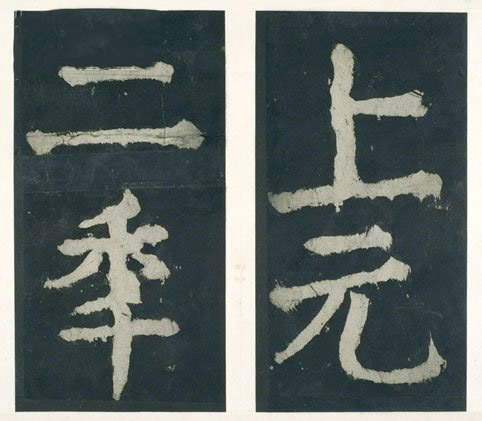 上元
二秊